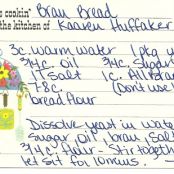 s cookin' Bran Bread
the kitchen of Karren Huffaker
3c. warm water 1 pkg y
3/4 c. oil 3/4c. Sugar
1T salt 1c. All Bran
7-8 c. (Don't use
bread flour
Dissolve yeast in wate
sugar, oil, bran, salt
3/4 c flour - Stir togethe
let sit for 10 mins.